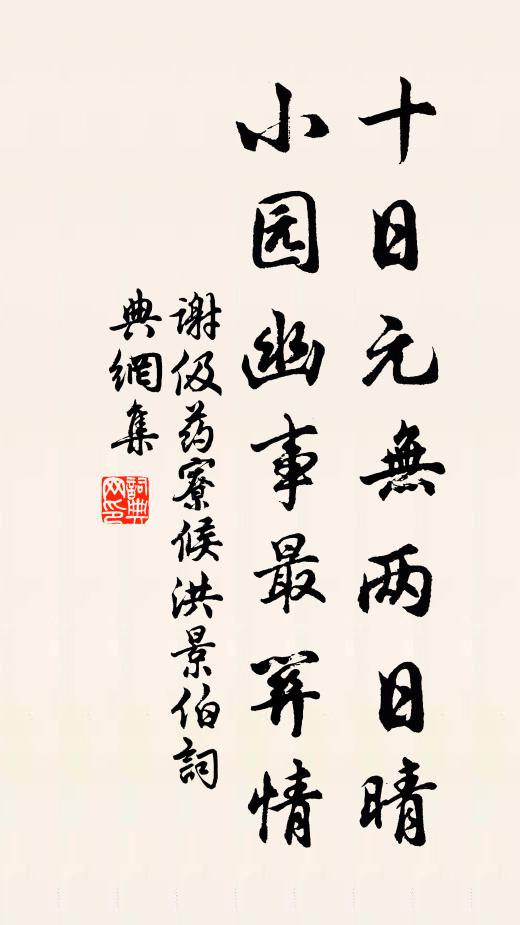 十日元無两日晴
小园幽事最関情
谢伋药寮候洪景伯詞
典網集
詞典
网印